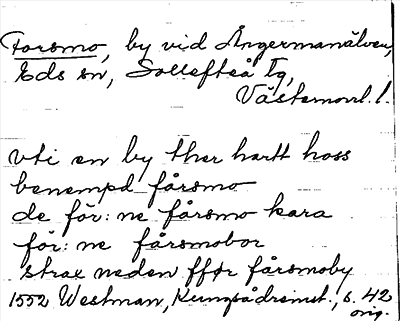 Forsmo, by vid Ångermanälven,
Eds sn, Sollefteå tg,
Västernorrl. l.
vti en by ther hartt hoss
benempd fårsmo
de för: ne fårsmo kara
för: ne fårsmobor
strax neden fför fårsmoby
1552 Westman, s. 42
orig.